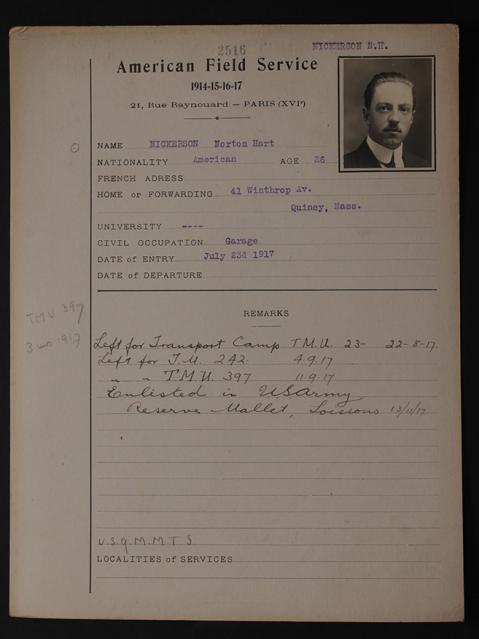 2516
NICKERSON N.H.
American Field Service
1914-15-16-17
21, Rue Raynouard — PARIS (XVIe)
NAME NICKERSON Norton Hart
NATIONALITY American AGE 26
FRENCH ADRESS
HOME or FORWARDING 41 Winthrop Av.
Quincy, Mass.
UNIVERSITY ----
CIVIL OCCUPATION Garage
DATE of ENTRY July 23d 1917
DATE of DEPARTURE
REMARKS
TMU 397
1917
Left for Transport Camp T.M.U. 23- 22-8-17.
Left for T.M. 242. 4.9.17
" " T.M.U. 397 11.9.17
Enlisted in US army
Reserve Mallet, Soissons 13/11/17
U.S.Q.M.M.T S.
LOCALITIES of SERVICES